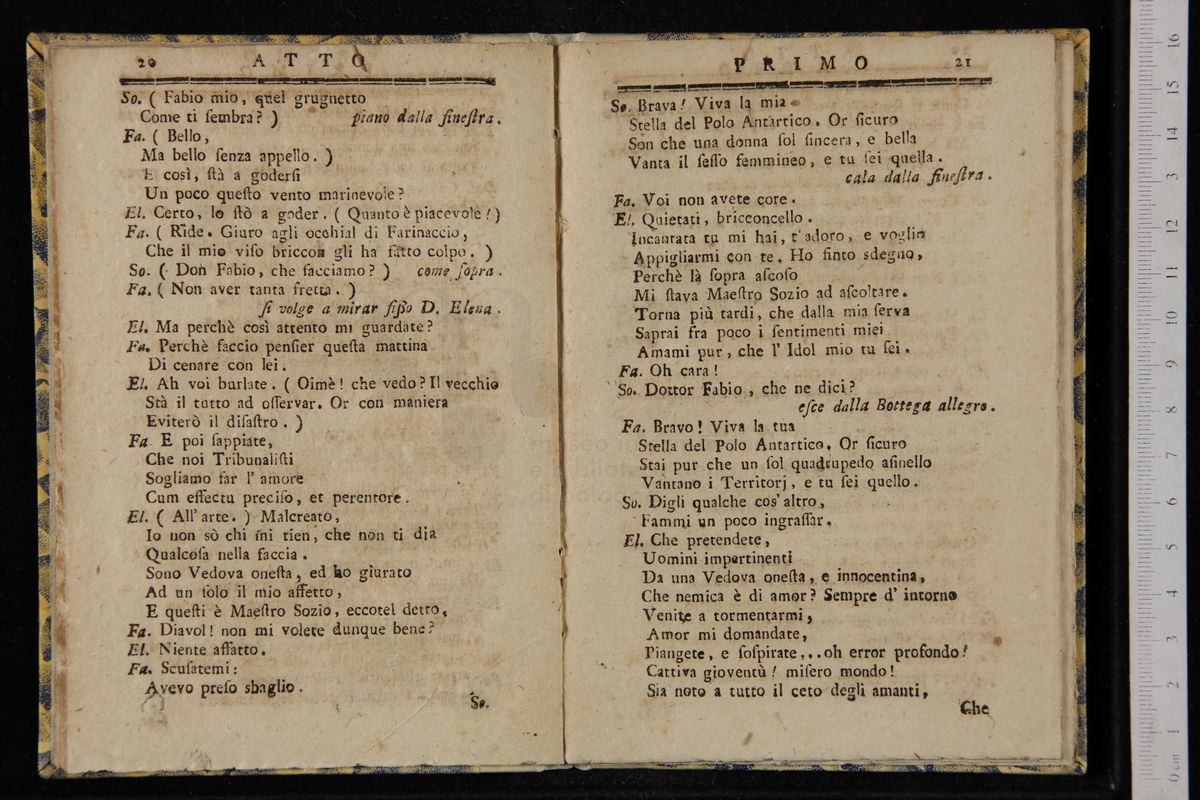 20 ATTO
So. ( Fabio mio, quel grugnetto
Come ti ſembra? ) piano dalla fineſtra.
Fa. ( Bello,
Ma bello ſenza appello. )
E così, ſtà a goderſi
Un poco queſto vento marinevole?
El. Certo, Io ſtò a goder. ( Quanto è piacevole! )
Fa. ( Ride. Giuro agli occhial di Farinaccio,
Che il mio viſo briccon gli ha fatto colpo. )
So. ( Don Fabio, che facciamo? ) come ſopra.
Fa. ( Non aver tanta fretta. )
ſi volge a mirar fiſſo D. Elena.
El. Ma perchè così attento mi guardate?
Fa. Perchè faccio penſier queſta mattina
Di cenare con lei.
El. Ah voi burlate. ( Oimè! che vedo? Il vecchio
Stà il tutto ad oſſervar. Or con maniera
Eviterò il diſaſtro. )
Fa. E poi ſappiate,
Che noi Tribunaliſti
Sogliamo far l' amore
Cum effectu preciſo, et perentore.
El. ( All' arte. ) Malcreato,
Io non sò chi mi tien, che non ti dia
Qualcoſa nella faccia.
Sono Vedova oneſta, ed ho giurato
Ad un ſolo il mio affetto,
E queſti è Maeſtro Sozio, eccotel detto.
Fa. Diavol! non mi volete dunque bene?
El. Niente affatto.
Fa. Scuſatemi:
Avevo preſo sbaglio.
So.
PRIMO 21
So. Brava! Viva la mia
Stella del Polo Antartico. Or ſicuro
Son che una donna ſol ſincera, e bella
Vanta il ſeſſo femmineo, e tu ſei quella.
cala dalla fineſtra.
Fa. Voi non avete core.
El. Quietati, bricconcello.
Incantata tu mi hai, t'adoro, e voglio
Appigliarmi con te. Ho finto sdegno,
Perchè là ſopra aſcoſo
Mi ſtava Maeſtro Sozio ad aſcoltare.
Torna più tardi, che dalla mia ſerva
Saprai fra poco i ſentimenti miei
Amami pur, che l' Idol mio tu ſei.
Fa. Oh cara!
So. Dottor Fabio, che ne dici?
eſce dalla Bottega allegro.
Fa. Bravo! Viva la tua
Stella del Polo Antartico. Or ſicuro
Stai pur che un ſol quadrupedo aſinello
Vantano i Territorj, e tu ſei quello.
So. Digli qualche cos' altro,
Fammi un poco ingraſſar.
El. Che pretendete,
Uomini impertinenti
Da una Vedova oneſta, e innocentina,
Che nemica è di amor? Sempre d' intorno
Venite a tormentarmi,
Amor mi domandate,
Piangete, e ſoſpirate,..oh error profondo!
Cattiva gioventù! miſero mondo!
Sia noto a tutto il ceto degli amanti,
Che